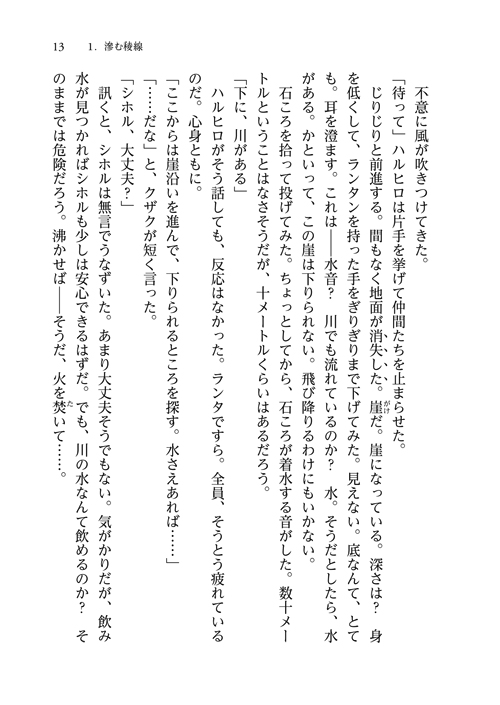 13　1．滲む稜線
不意に風が吹きつけてきた。
「待って」ハルヒロは片手を挙げて仲間たちを止まらせた。
じりじりと前進する。間もなく地面が消失した。崖だ。崖になっている。深さは？　身
を低くして、ランタンを持った手をぎりぎりまで下げてみた。見えない。底なんて、とて
も。耳を澄ます。これは――水音？　川でも流れているのか？　水。そうだとしたら、水
がある。かといって、この崖は下りられない。飛び降りるわけにもいかない。
石ころを拾って投げてみた。ちょっとしてから、石ころが着水する音がした。数十メー
トルということはなさそうだが、十メートルくらいはあるだろう。
「下に、川がある」
ハルヒロがそう話しても、反応はなかった。ランタですら。全員、そうとう疲れている
のだ。心身ともに。
「ここからは崖沿いを進んで、下りられるところを探す。水さえあれば……」
「……だな」と、クザクが短く言った。
「シホル、大丈夫？」
訊くと、シホルは無言でうなずいた。あまり大丈夫そうでもない。気がかりだが、飲み
水が見つかればシホルも少しは安心できるはずだ。でも、川の水なんて飲めるのか？　そ
のままでは危険だろう。沸かせば――そうだ、火を焚いて……。
がけ
た